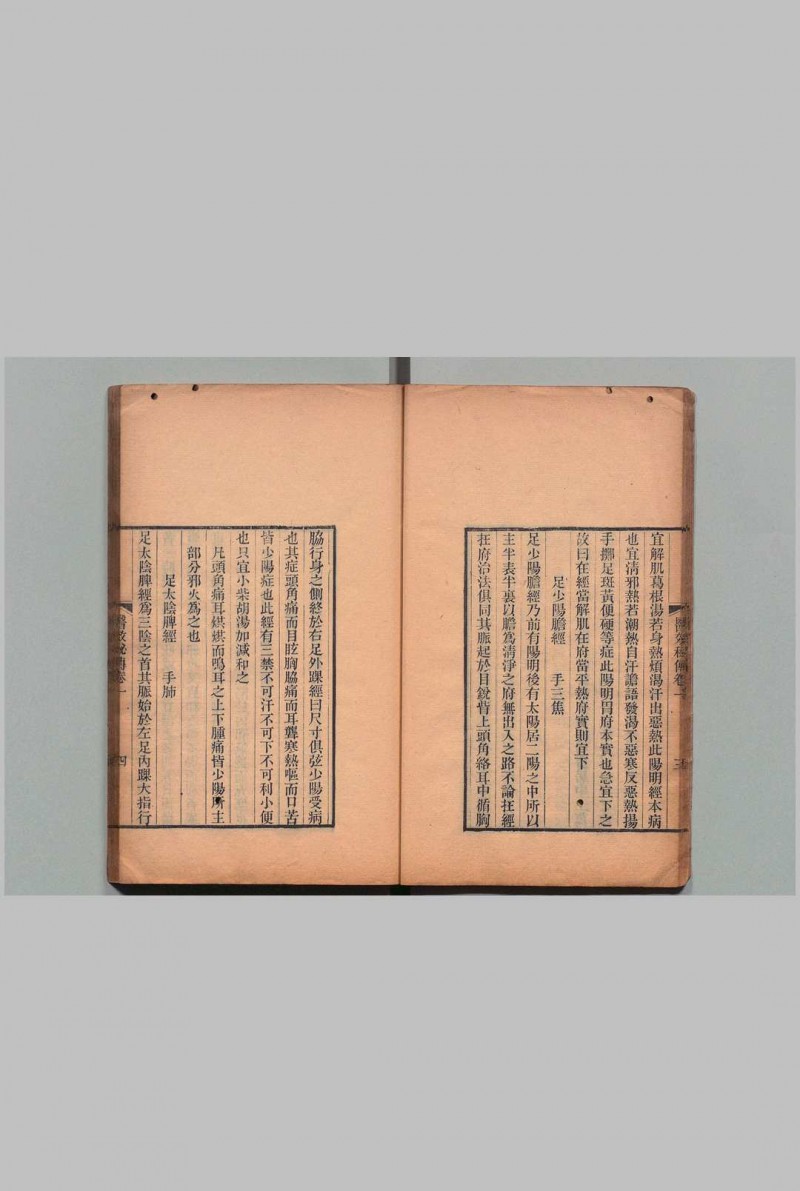 宜解肌葛根湯若身熱煩渴汗出惡熱此陽明經本病
也宜清邪熱若潮熱自汗譫語發渴不惡寒反惡熱揚
手擲足斑黃便硬等症此陽明胃府本實也急宜下之
故曰在經當解肌在府當平熱府實則宜下
足少陽膽經 手三焦
足少陽膽經乃前有陽明後有太陽居二陽之中所以
主半表半裏以膽為清淨之府無出入之路不論在經
在府治法俱同其脈起於目銳眥上頭角絡耳中循胸
脇行身之側終於右足外踝經曰尺寸俱弦少陽受病
也其症頭角痛而目眩胸脇痛而耳聾寒熱嘔而口苦
皆少陽症也此經有三禁不可汗不可下不可利小便
也只宜小柴胡湯加減和之
凡頭角痛耳烘烘而鳴耳之上下腫痛皆少陽所主
部分邪火為之也
足太陰脾經 手肺
足太陰脾經為三陰之首其脈始於左足內踝大指行
卷一
四